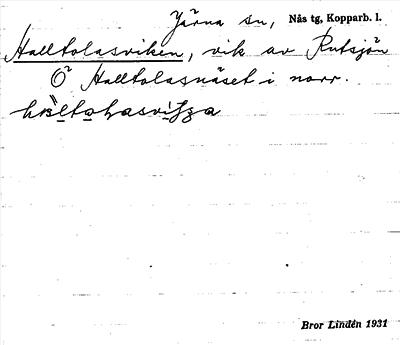 Järna sn, Nås tg, Kopparb. l.
Halltolasviken, vik av Rutsjön
O² Halltolasnäset i norr.
Bror Lindén 1931